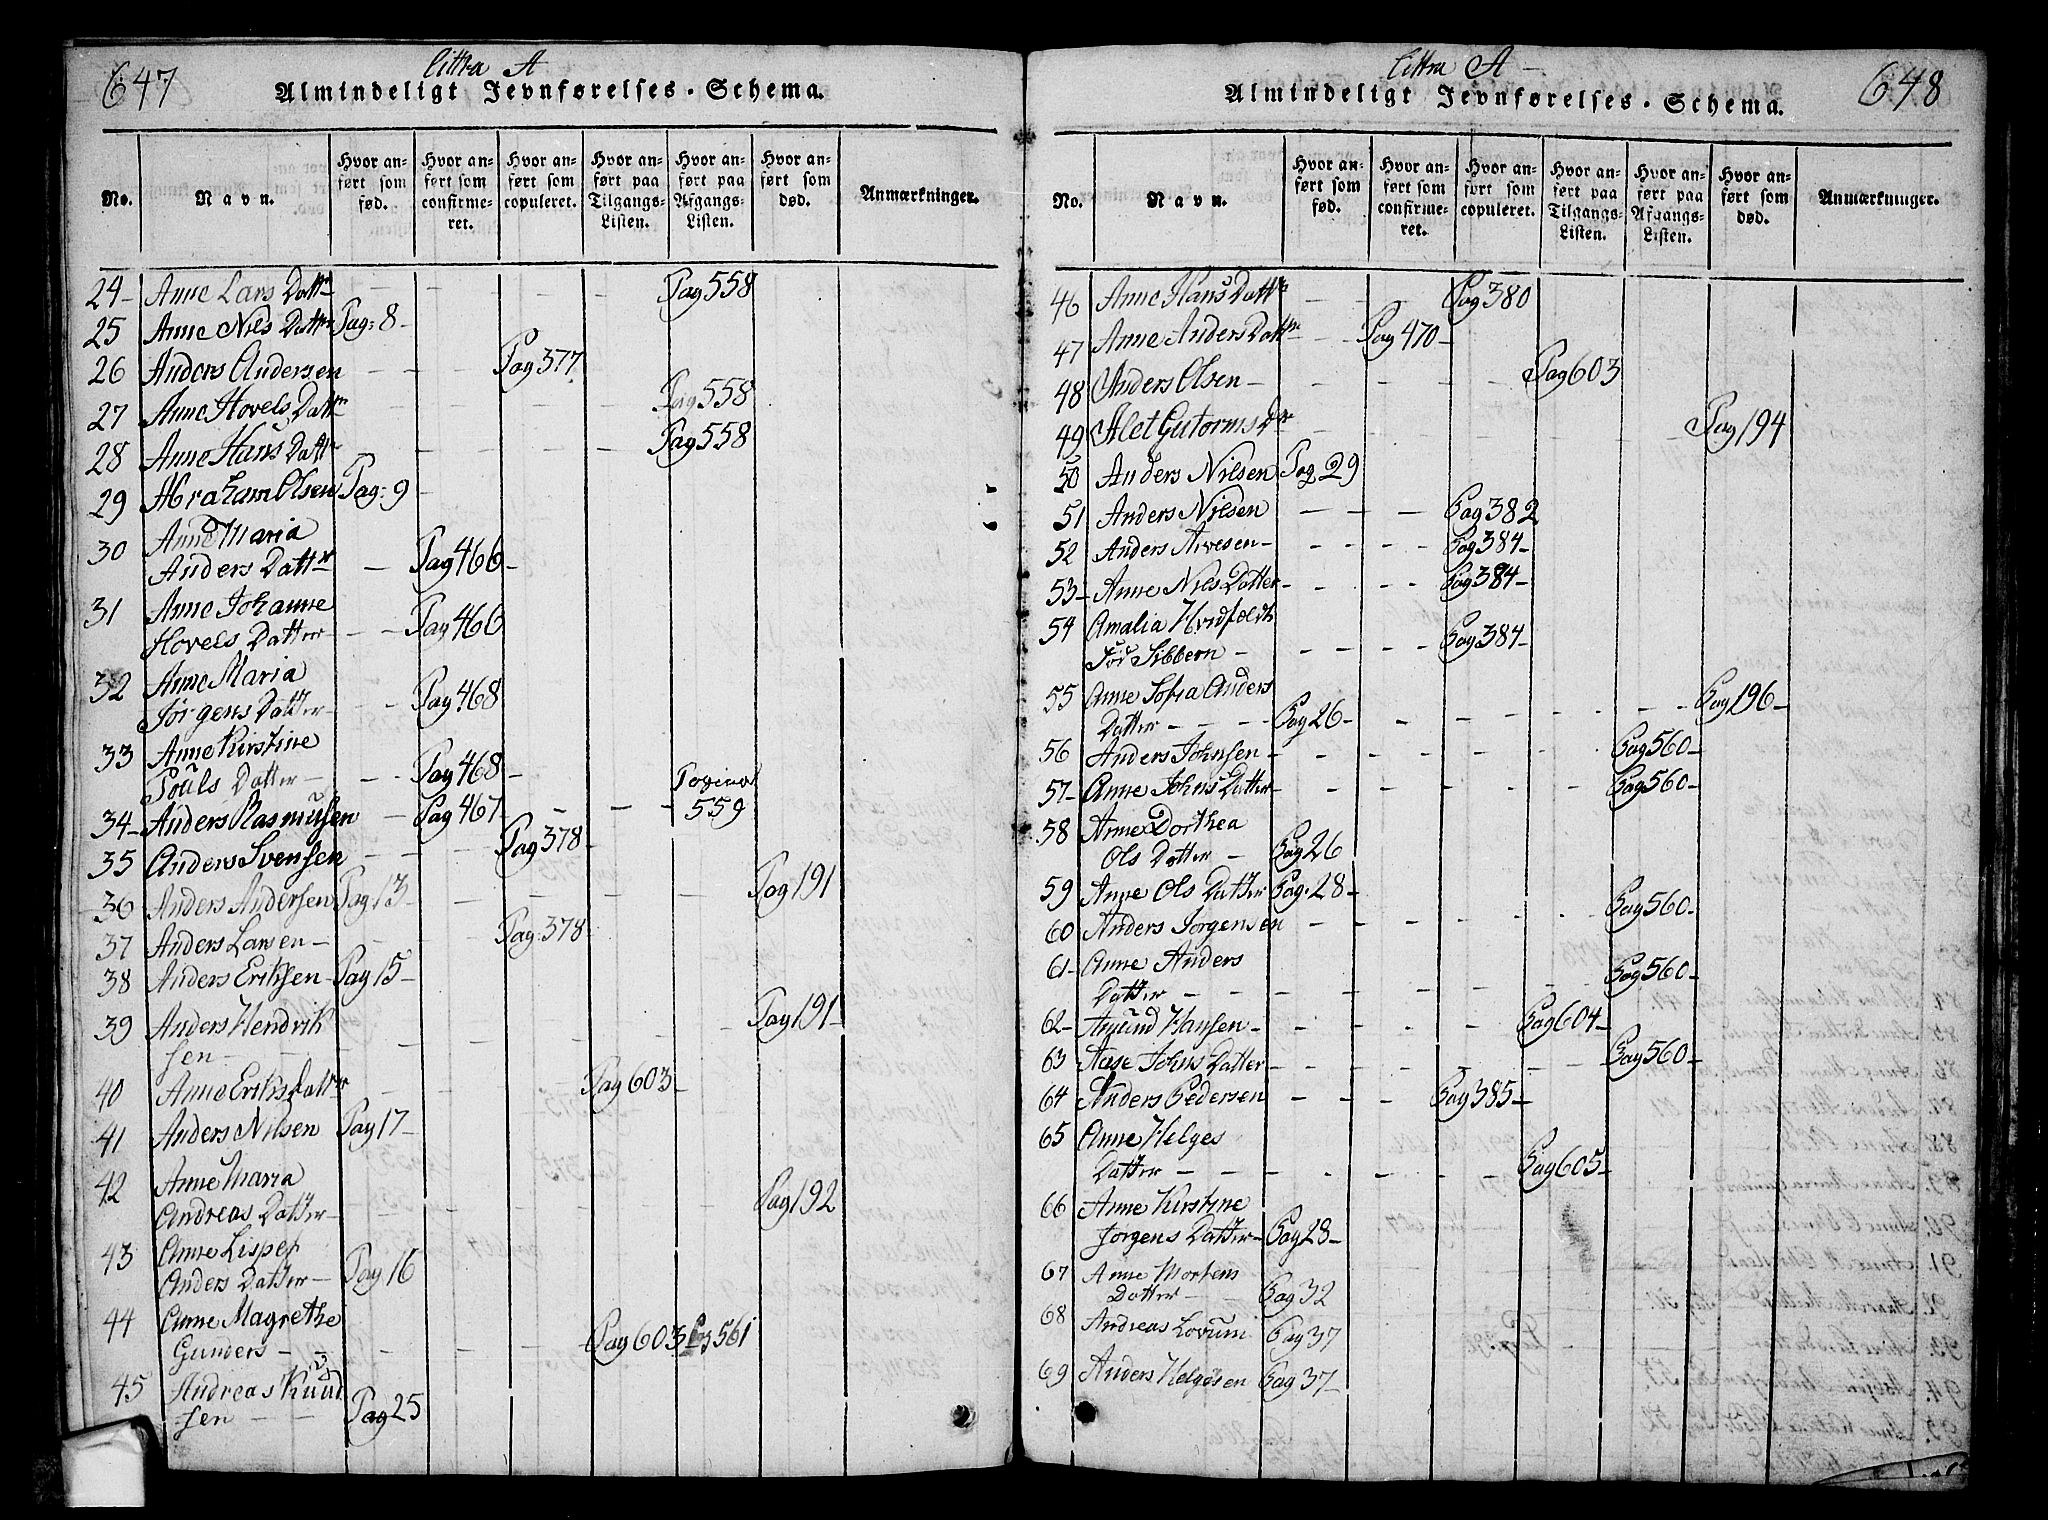 647
Littra A
Almindeligt Jevnførelses-Schema.
No.
Navn.
Hvor anført som fød.
Hvor anført som confirmeret.
Hvor anført som copuleret.
Hvor anført paa Tilgangs-Listen.
Hvor anført paa Afgangs-Listen.
Hvor anført som død.
Anmærkninger.
24- Anne Lars Dattr - - - - Pag 558
25 Anne Nils Dattr Pag: 8-
26 Anders Andersen - - - Pag 377
27 Anne Hovels Dattr - - - - Pag 558
28 Anne Hans Dattr - - - - Pag 558
29 Abraham Olsen Pag: 9-
30 Anne Maria
Anders Dattr - Pag 466-
31 Anne Johanne
Hovels Datter - - Pag 466
32 Anne Maria
Jørgens Datter - - Pag 468
33 Anne Kirstine
Pouls Datter - - - Pag 468-
34- Anders Rasmusen - Pag 467 - - - Pagina 559
35 Anders Svensen - - - Pag 378-
36 Anders Andersen Pag 13- - - - - Pag 191
37 Anders Larsen - - - Pag: 378-
38 Anders Eriksen - Pag 15-
39 Anders Hendrik
sen - - - - - - - Pag 191-
40 Anne Eriks Dattr - - - Pag 603-
41 Anders Nilsen Pag 17-
42 Anne Maria
Andreas Datter - - - - - - Pag 192
43 Anne Lispet
Anders Datter - Pag 16
44 Anne Magrethe
Gunders - - - - - Pag 603 Pag 561
45 Andreas Knud
sen - - Pag 25
648
Littra A -
Almindeligt Jevnførelses-Schema.
No.
Navn.
Hvor anført som fød.
Hvor anført som confirmeret.
Hvor anført som copuleret.
Hvor anført paa Tilgangs-Listen.
Hvor anført paa Afgangs-Listen.
Hvor anført som død.
Anmærkninger.
46 Anne Hans Dattr - - - Pag 380
47 Anne Anders Dattr - - Pag 470-
48 Anders Olsen - - - - - Pag 603
49 Alet Gutorms Dr - - - - - Pag 194
50 Anders Nilsen Pag 29
51 Anders Nilsen - - - Pag 382
52 Anders Arvesen - - - - - Pag 384-
53- Anne Nils Datter - - - - Pag 384-
54 Amalia Hvidfeldt
Sibbern - - - - - Pag 384-
55 Anne Sofia Anders
Datter - - - - Pag 26- - - - - - Pag 196-
56 Anders Johnsen - - - - - - Pag 560-
57- Anne Johns Datter - - - - - Pag 560-
58 Anne Dorthea
Ols Datter - Pag 26
59 Anne Ols Datter Pag. 28-
60 Anders Jørgensen - - - - - Pag 560-
61- Anne Anders
Datter - - - - - - - Pag 560-
62- Amund Hansen - - - - - Pag 604-
63 Aase Johns Datter - - - - - Pag 560-
64 Anders Pedersen - - - Pag 385-
65 Anne Helges
Datter - - - - - - - Pag 605-
66 Anne Kirstine
Jørgens Datter - Pag 28-
67 Anne Mortens
Datter - - Pag 32
68 Andreas Lovumi Pag 37
69 Anders Helgesen Pag 37-